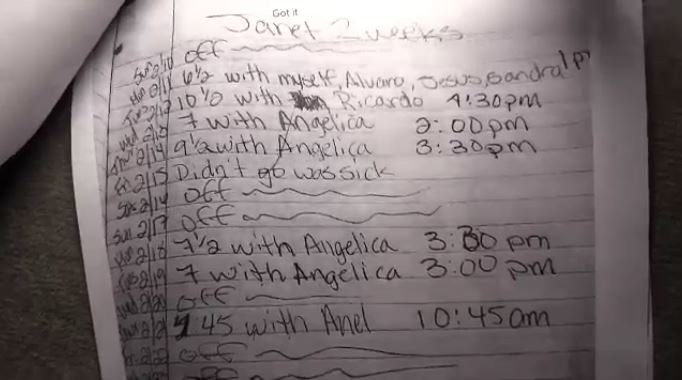 Got it
Janet 2 weeks
Sun 2/10 off
Mon 2/11 6 1/2 with myself, Alvaro, Jesus, Sandra
Tue 2/12 10 1/2 with Ricardo 4:30pm
Wed 2/13 7 with Angelica 2:00pm
Thur 2/14 9 1/2 with Angelica 3:30pm
Fri 2/15 Didn't go was sick
Sat 2/16 off
Sun 2/17 off
Mon 2/18 7 1/2 with Angelica 3:30 pm
Tue 2/19 7 with Angelica 3:00 pm
Wed 2/20 off
2/21 45 with Anel 10:45am
Fri 2/22 off
off